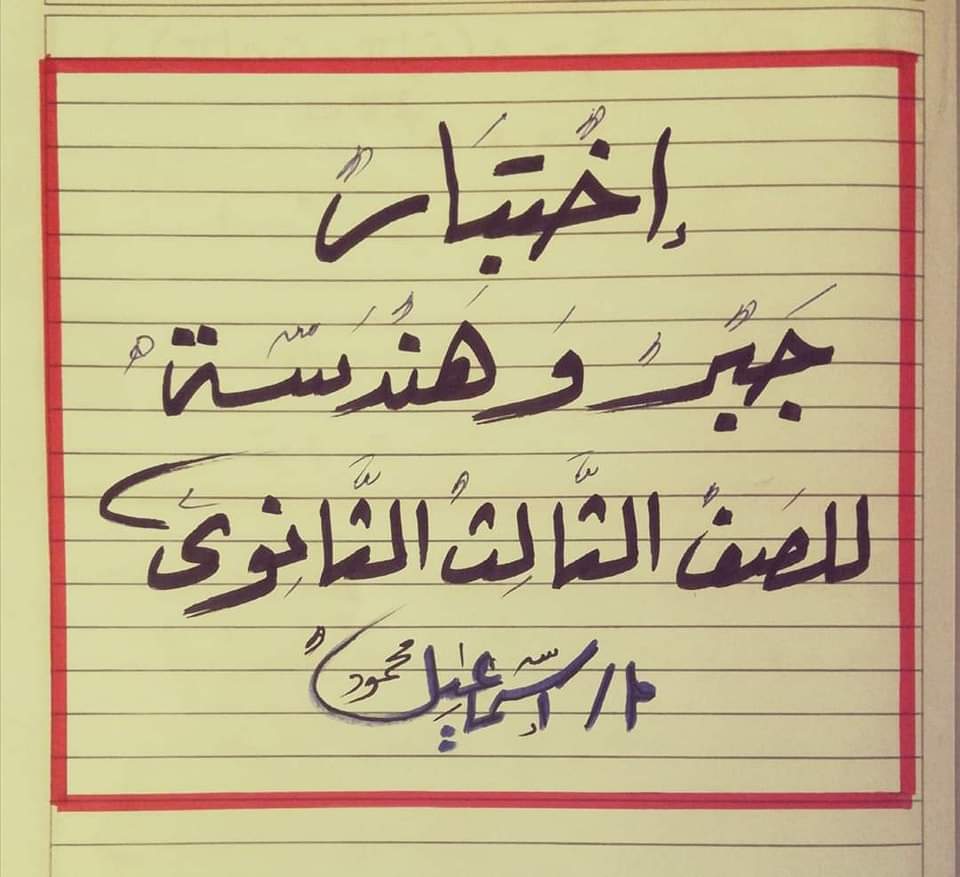 إختبار
جبر وهندسة
للصف الثالث الثانوى
م/ إسماعيل محمود